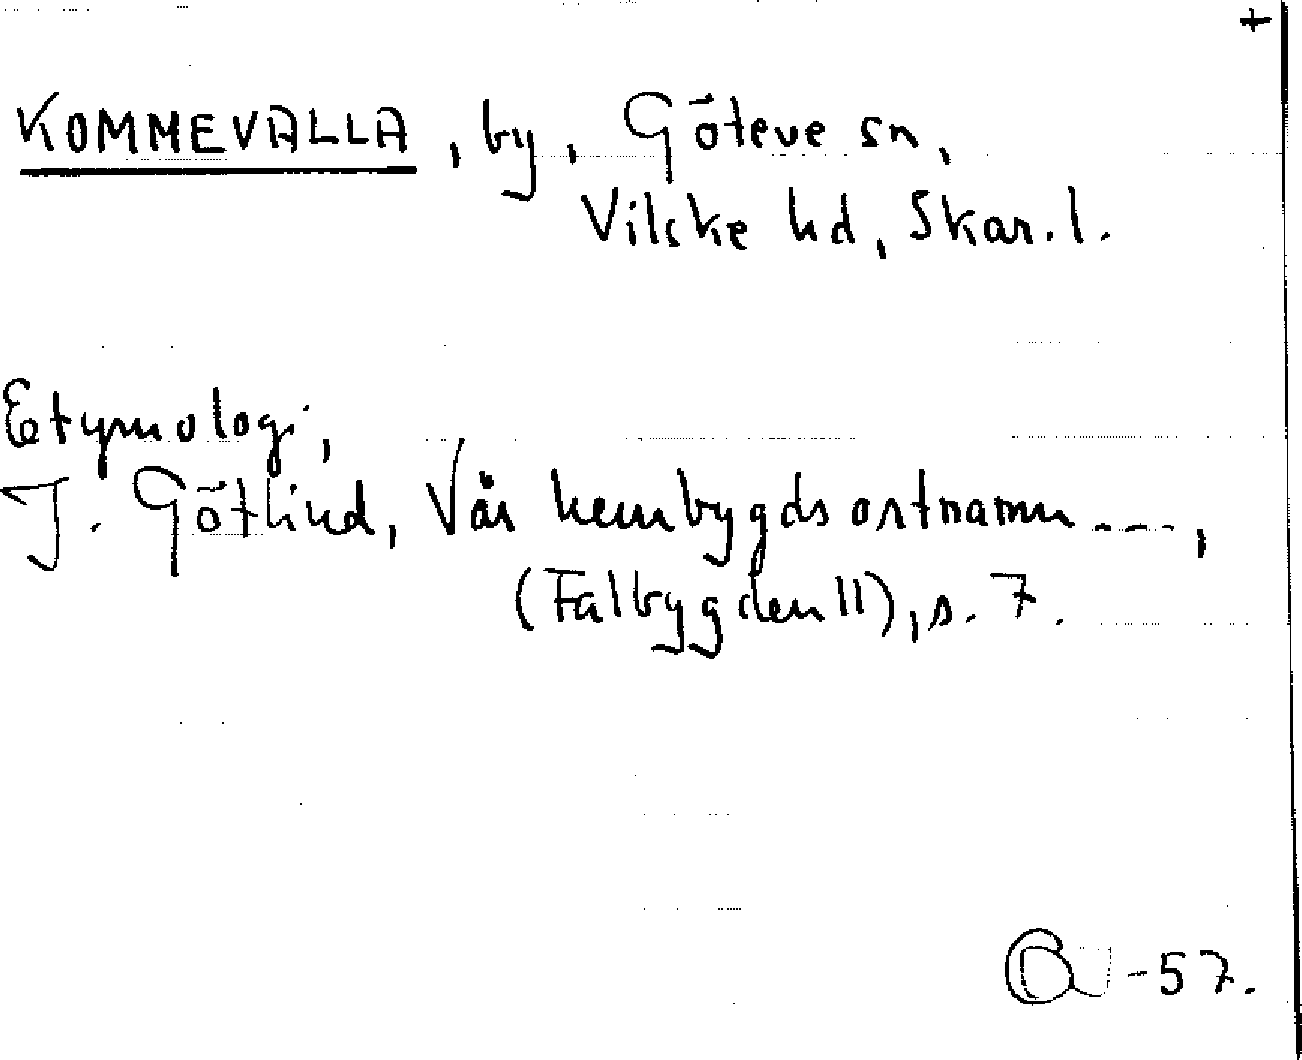 +
KOMMEVALLA, by, Göteve sn,
Vilske hd, Skar.l.
Etymologi,
J. Götlind, Vår hembygds ortnamn ----,
(Falbygden 11), s. 7.
-57.